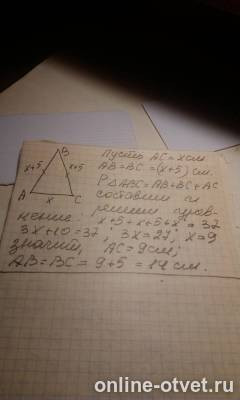 Пусть AC = x см.
AB = BC = (x+5) см.
P△ABC = AB + BC + AC
составим и
решим урав-
нение: x+5+x+5+x = 37
3x+10=37; 3x=27; x=9
значит, AC = 9 см;
AB = BC = 9+5 = 14 см.
B
x+5 x+5
A x C
online-otvet.ru